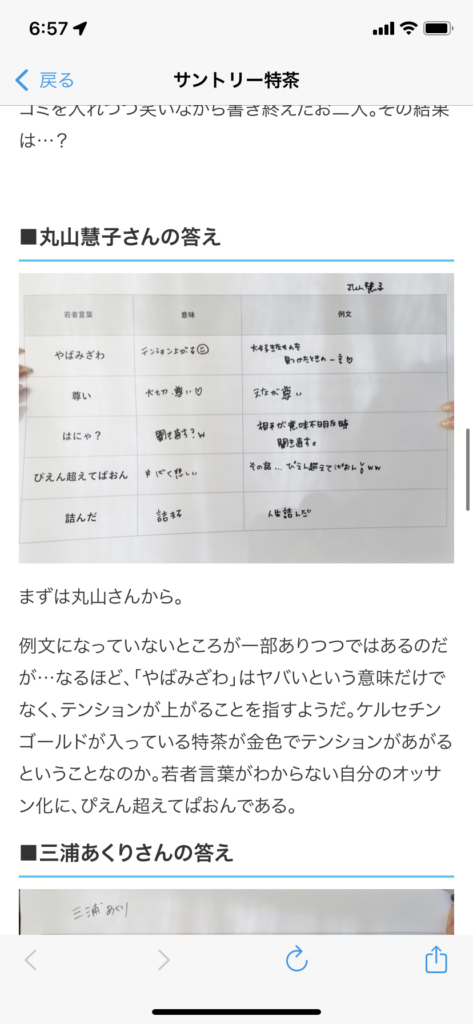 6:57
戻る
サントリー特茶
コミを入れつつ笑いながら書き終えたお二人。その結果
は…？
■丸山慧子さんの答え
丸山慧子
若者言葉 意味 例文
やばみざわ テンション上がる 大好きなものを
見つけたときの一言♡
尊い 大切、尊い♡ 尊い
はにゃ？ 聞き直す？w 相手が意味不明な時
聞き直す。
ぴえん超えてぱおん すごく悲しい その話…ぴえん超えてぱおんww
詰んだ 詰まる 人生詰んだ
まずは丸山さんから。
例文になっていないところが一部ありつつではあるのだ
が…なるほど、「やばみざわ」はヤバいという意味だけで
なく、テンションが上がることを指すようだ。ケルセチン
ゴールドが入っている特茶が金色でテンションがあがる
ということなのか。若者言葉がわからない自分のオッサ
ン化に、ぴえん超えてぱおんである。
■三浦あくりさんの答え
三浦あくり